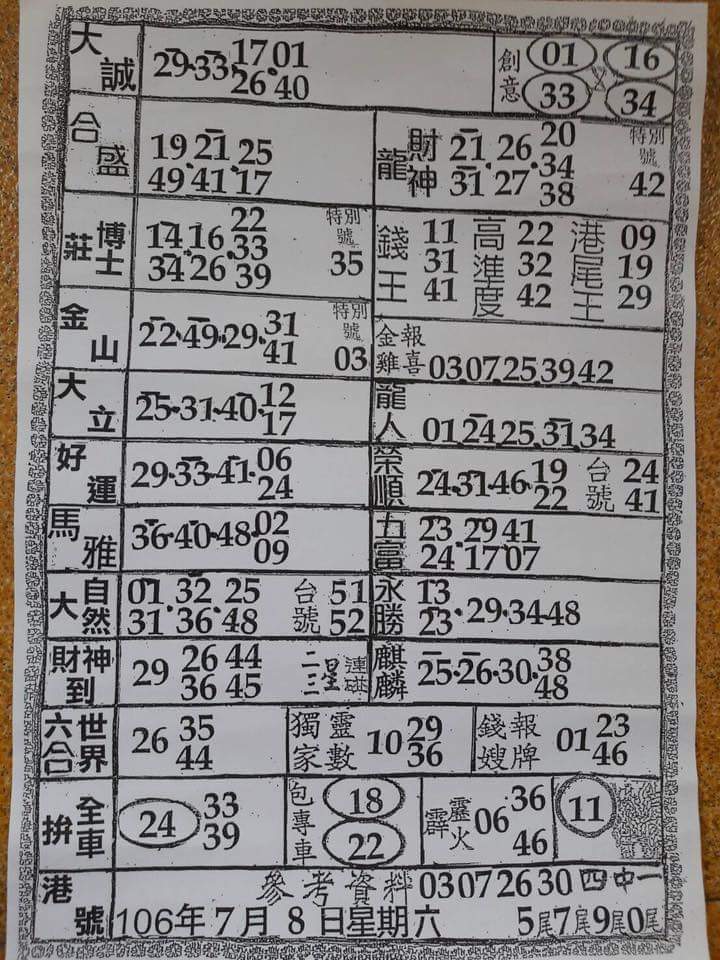 大誠 29.33.17 01 26.40
創意 01 16 33 34
合盛 19 21 25 49.41.17
龍財神 21 26 20 31 27 34 38 特別號 42
莊博士 14 16 22 34 26 33 39 特別號 35
錢王 11 31 41 高準度 22 32 42 港尾王 09 19 29
金山 22.49.29.31 41 特別號 03
金雞報喜 03.07.25.39.42
大立 25.31.40.12 17
龍人 01 24.25.31.34
好運 29.33.41.06 24
榮順 24.31.46.19 22 台號 24 41
馬雅 36.40.48.02 09
五富 23 29 41 24 17 07
大自然 01 32 25 31 36 48 台號 51 52
永勝 13 23 29.34.48
財神到 29 26 44 36 45 二三星連碰
麒麟 25.26.30.38 48
六合世界 26 35 44
獨家靈數 10 29 36
錢嫂報牌 01 23 46
拚全車 24 33 39
包專車 18 22
霹靂火 06 36 46
11
港號 參考資料 03 07 26 30 四中一
106年7月8日星期六 5尾7尾9尾0尾